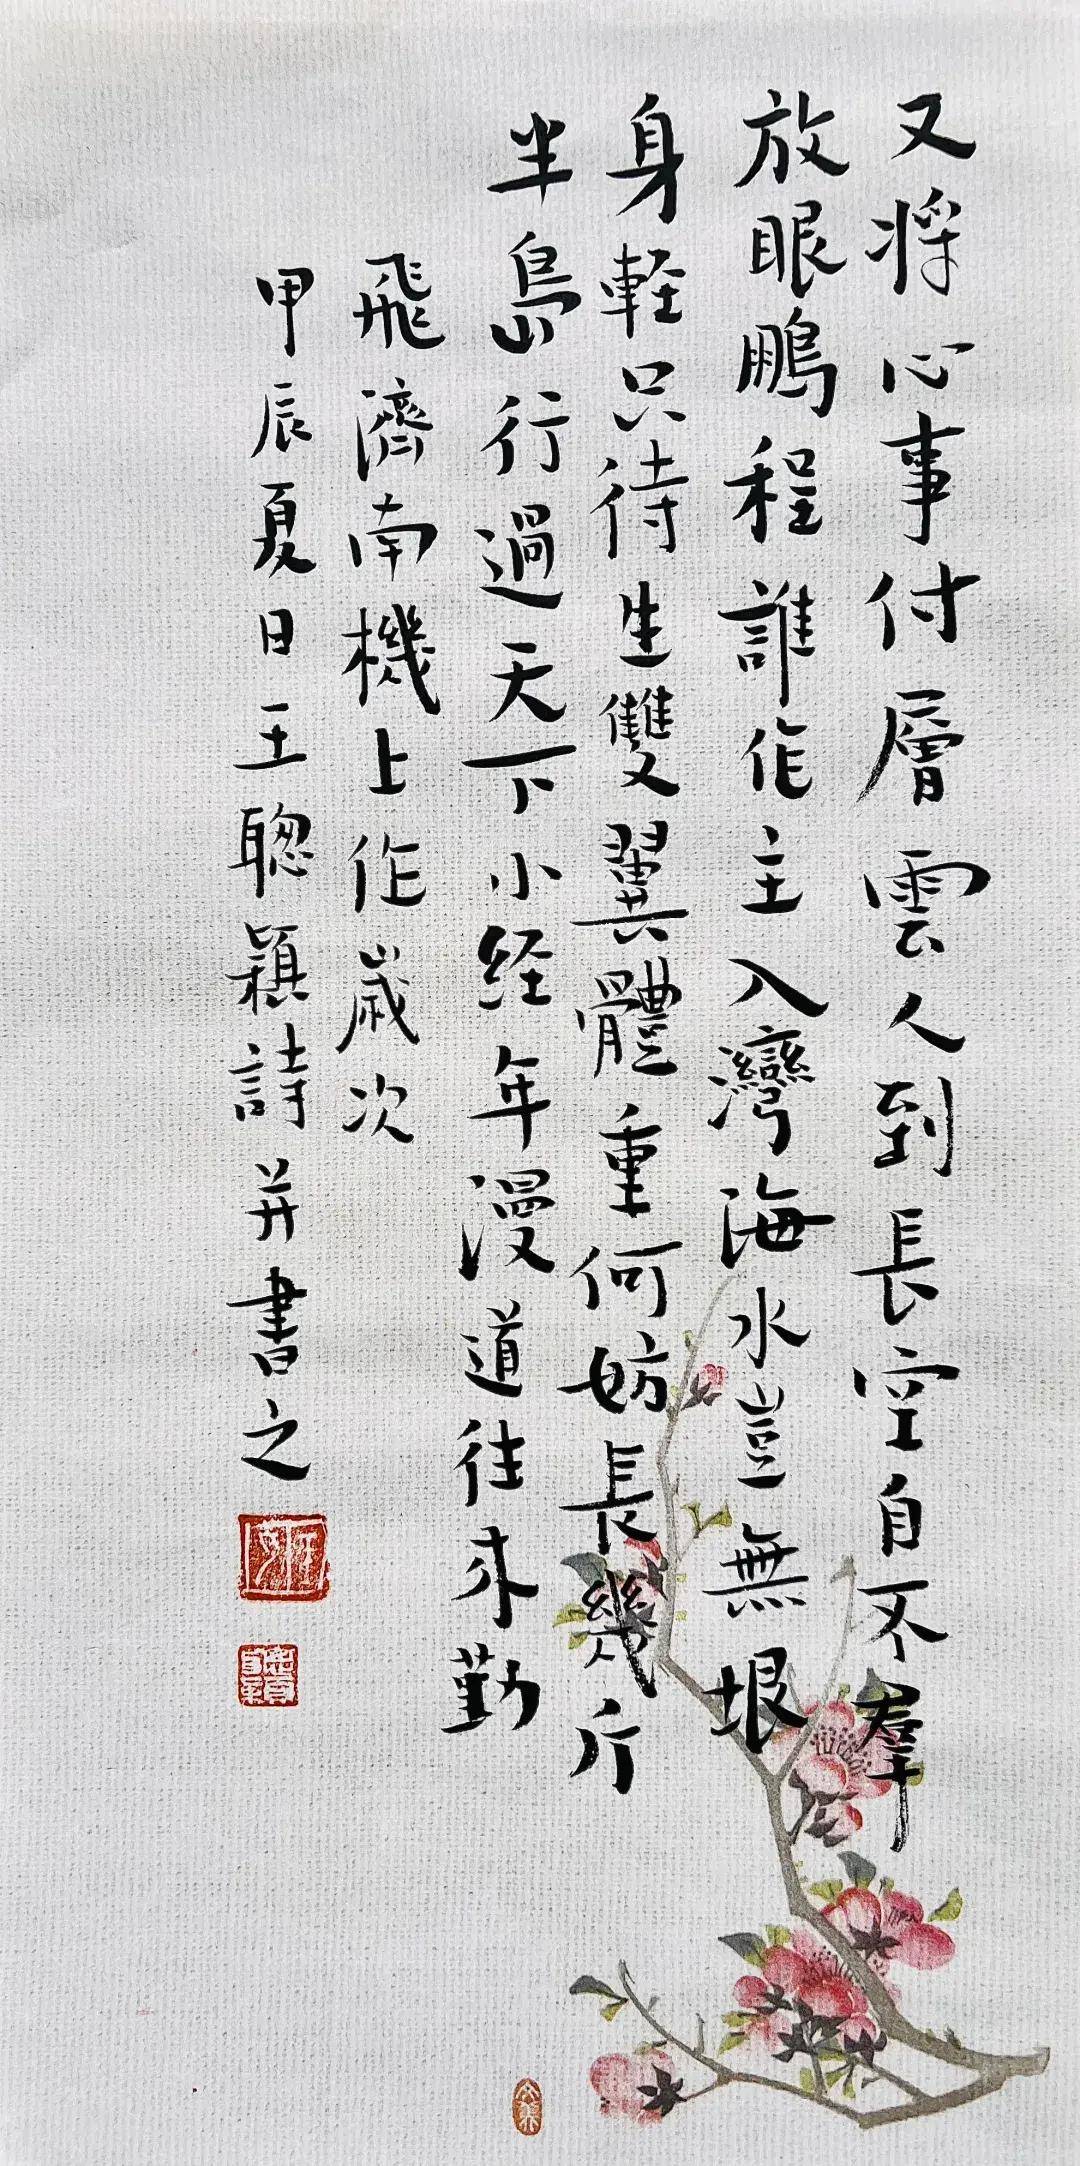 又将心事付層雲人到長空自不羣
放眼鵬程誰作主入灣海水豈無垠
身軽只待生雙翼體重何妨長幾斤
半島行過天下小経年漫道往来勤
飛濟南機上作歲次
甲辰夏日王聰穎詩并書之